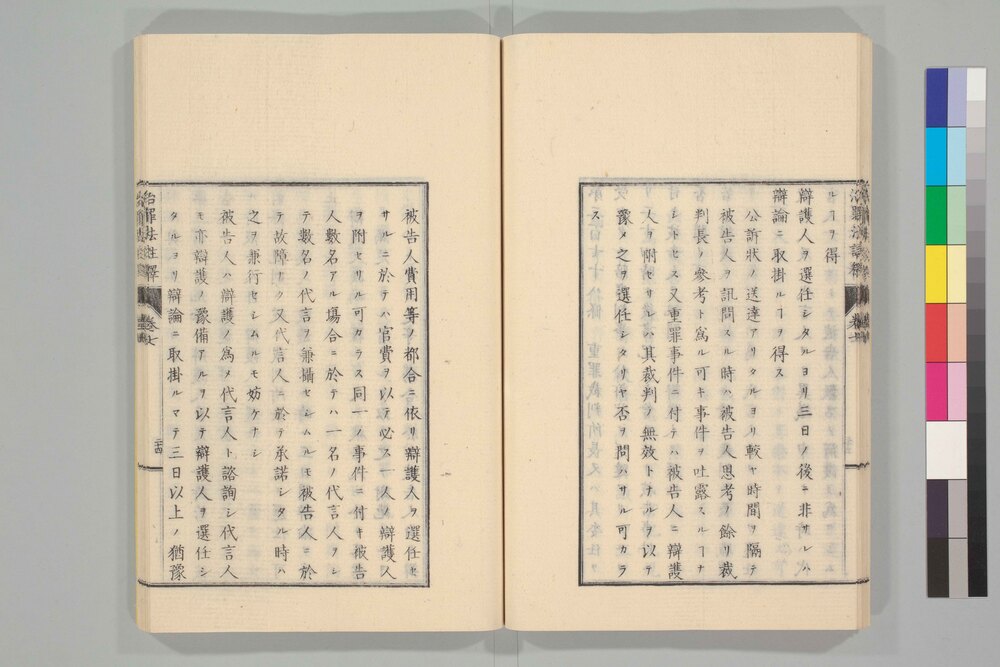 ルヿヲ得
辯護人ヲ選任シタルヨリ三日ノ後ニ非サレハ
辯論ニ取掛ルヿヲ得ス
公訴狀ノ送達アリタルヨリ較ヤ時間ヲ隔テ
被告人ヲ訊問スル時ハ被告人思考ノ餘リ裁
判長ノ參考ト爲ル可キ事件ヲ吐露スルヿナ
シトセス又重罪事件ニ付テハ被告人ニ辯護
人ヲ附セサレハ其裁判ノ無效トナルヲ以テ
豫メ之ヲ選任シタリヤ否ヲ問ハサル可カラ
ス
被告人費用等ノ都合ニ依リ辯護人ヲ選任セ
サルニ於テハ官費ヲ以テ必ス一人ノ辯護人
ヲ附セサル可カラス同一ノ事件ニ付キ被告
人數名アル塲合ニ於テハ一名ノ代言人ヲシ
テ數名ノ代言ヲ兼攝セシムルモ被告人ニ於
テ故障ナク又代言人ニ於テ承諾シタル時ハ
之ヲ兼行セシムルモ妨ケナシ
被告人ハ辯護ノ爲メ代言人ト諮詢シ代言人
モ亦辯護ノ豫備アルヲ以テ辯護人ヲ選任シ
タルヨリ辯論ニ取掛ルマテ三日以上ノ猶豫
治罪法註釋 卷七 二十四